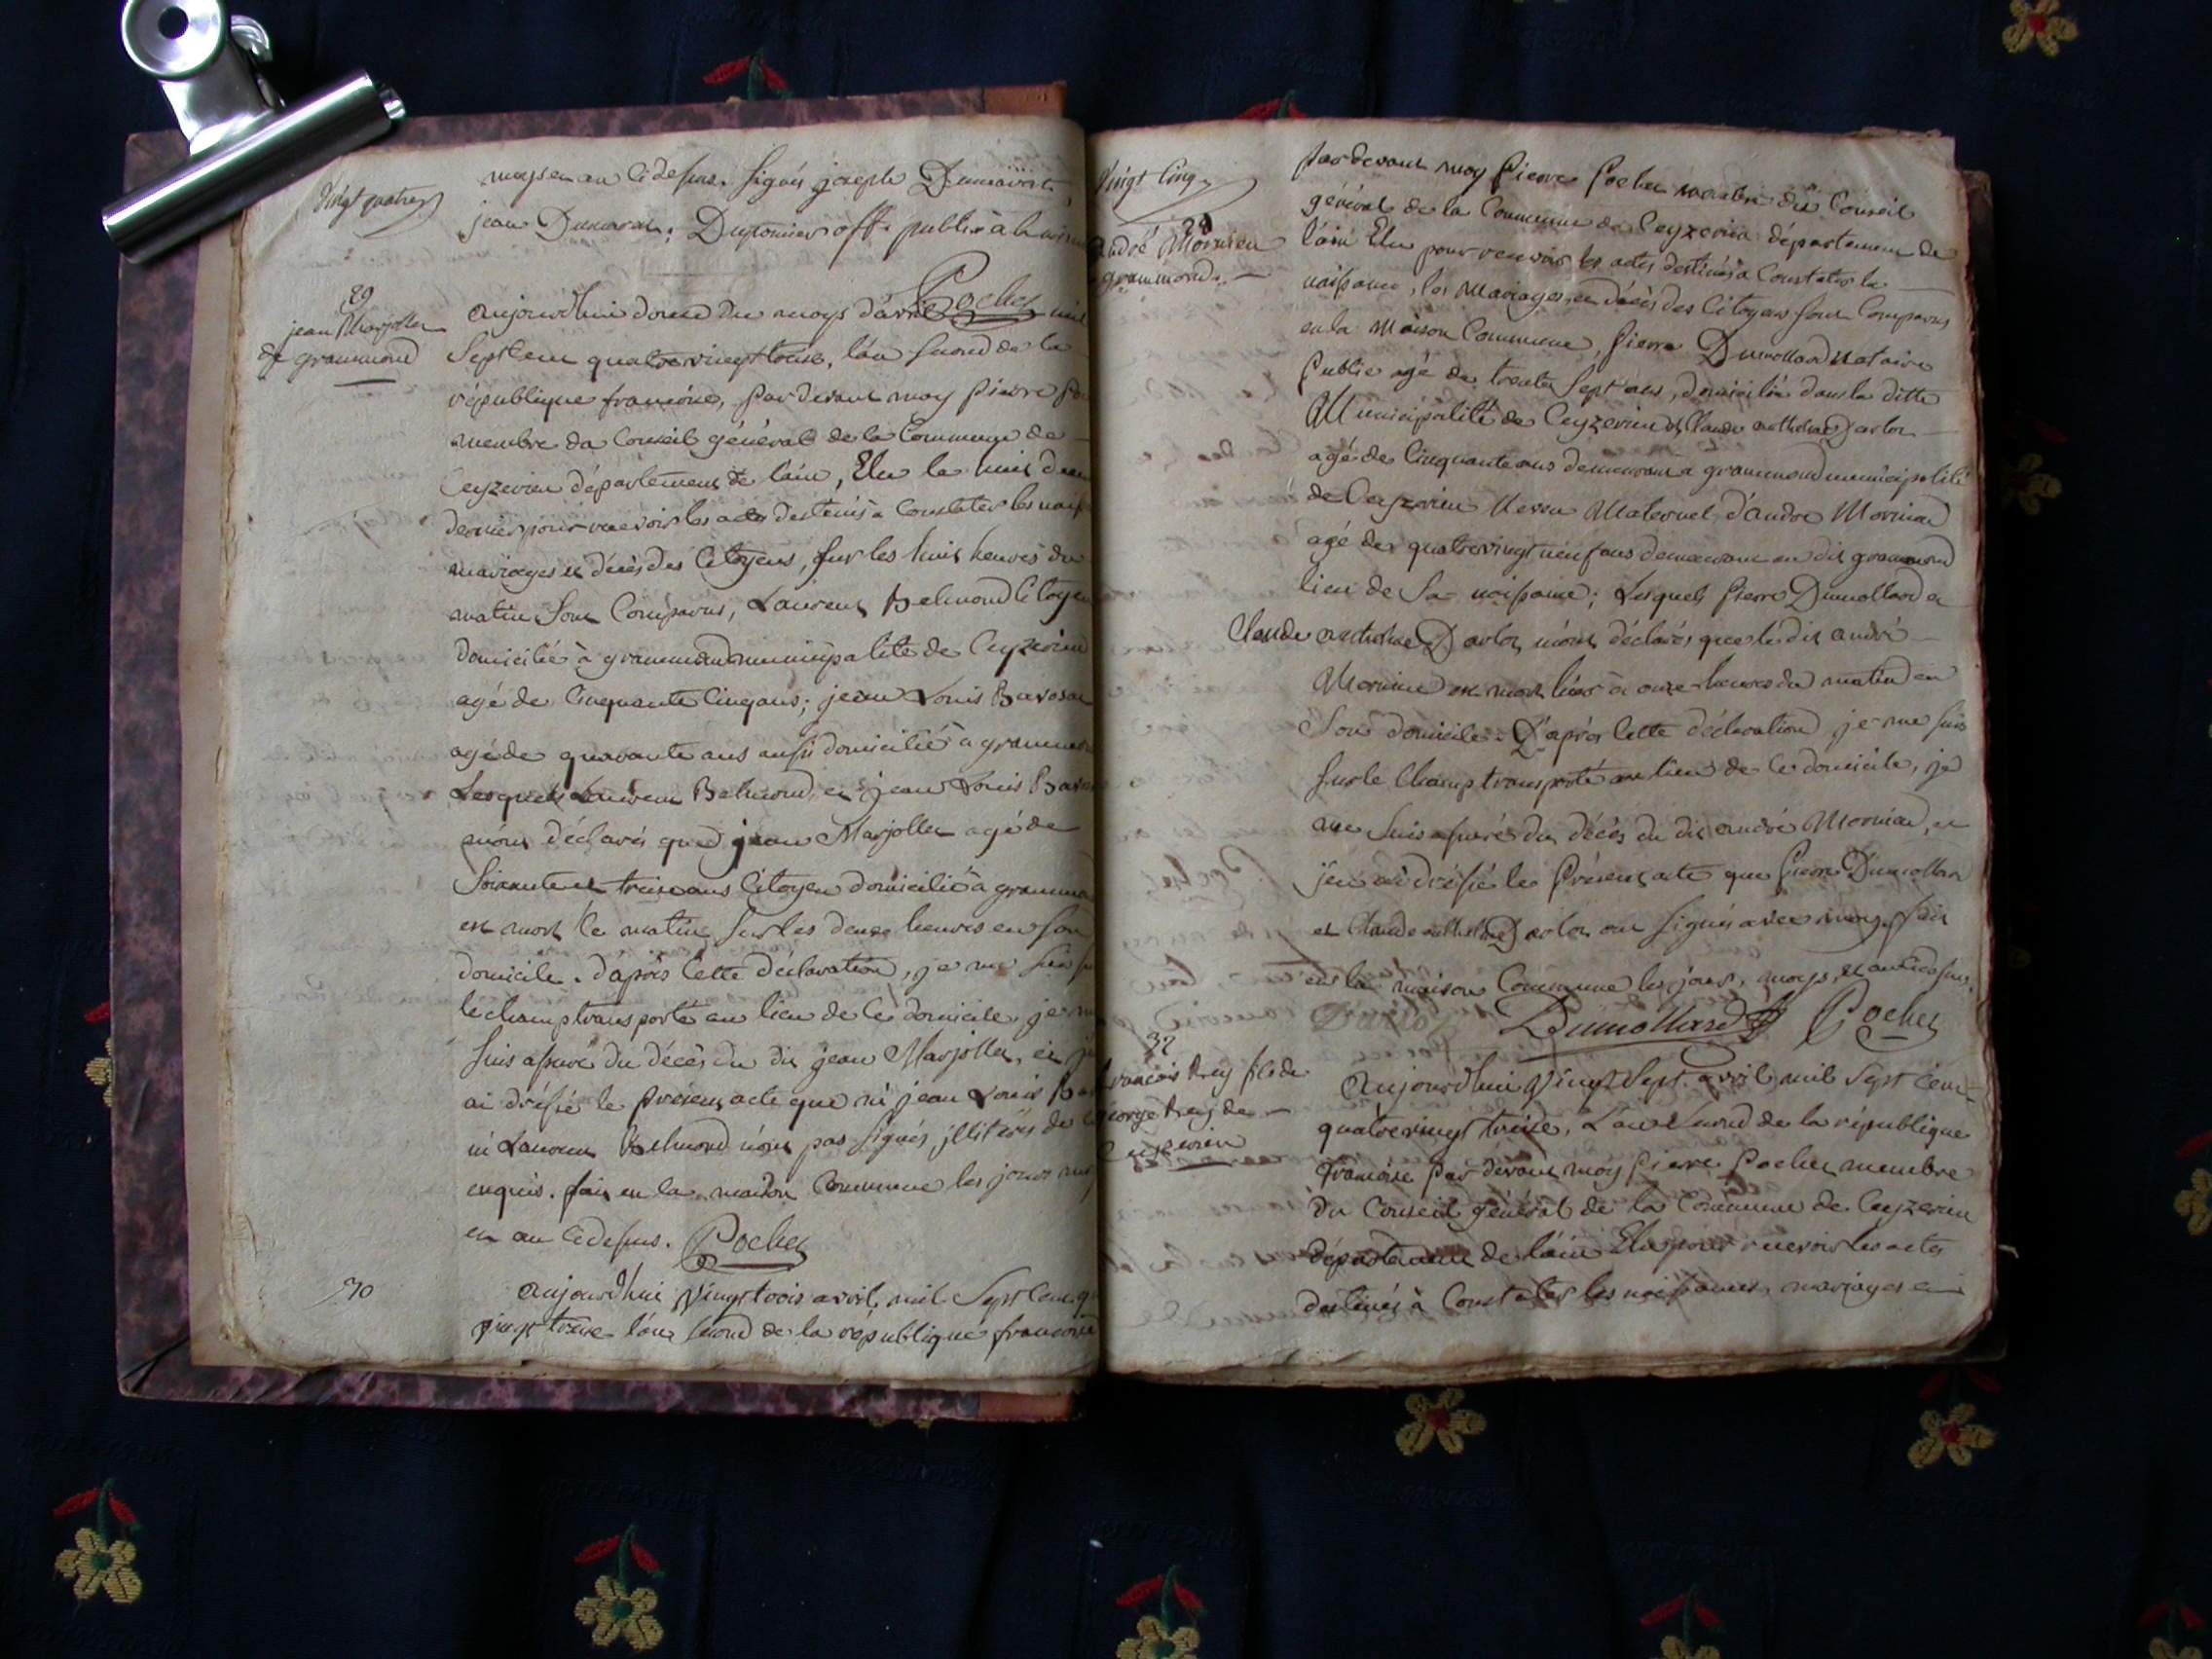 Vingt quatre
moys en an Cidessus. signés joseph Dumarest
jean Dumarest; off. public à la
Pochet
29
jean Marjollet
de grammond
aujourdhui douze du moys d'avril mil
Sept Cent quatrevingt treize, l'an second de la
république francoise, par devant moy pierre
membre du Conseil général de la Commune de
Ceyzerieu département de l'ain, Elu le huit
dernier pour recevoir les actes destinés à Constater les
mariages et décès des Citoyens, sur les huit heures du
matin Sont Comparus, Laurent Belmond Citoyen
domicilié à grammond municipalité de Ceyzerieu
agé de Cinquante Cinq ans; jean Louis
agé de quarante ans aussi domicilié à
Lesquels Laurent Belmond, et jean Louis
m'ont déclarés que jean Marjollet agé de
Soixante et treize ans Citoyen domicilié à
est mort ce matin sur les deux heures en son
domicile. d'après Cette déclaration, je me suis
le champ transporté au lieu de Ce domicile, je
suis assuré du décès du dit jean Marjollet, et
ai dréssé le présent acte que ni jean Louis
ni Laurent Belmond n'ont pas signés, jllitérés de
enquis. fait en la maison Commune les jours
en an Cidessus. Pochet
30
aujourdhui vingt trois avril, mil Sept Cent
vingt treize l'an second de la république francoise
Vingt Cinq
par devant moy Pierre Pochet membre du Conseil
général de la Commune de Ceyzerieu département de
l'ain Elu pour recevoir les actes destinés à Constater la
André Mornieu
grammond
naissance, les Mariages, en décès des Citoyens sont Comparus
en la Maison Commune, Pierre Dumollard Notaire
Public agé de trente Sept ans, domicilié dans la ditte
Municipalité de Ceyzerieu et Claude anthelme Darlon
agé de Cinquante ans demeurant à grammond municipalité
de Ceyzerieu Neveu Maternel, d'andré Mornieu
agé de quatrevingt neuf ans demeurant en dit grammond
lieu de Sa naissance; Lesquels Pierre Dumollard et
Claude anthelme Darlon m'ont déclarés que le dit andré
Mornieu est mort hier à onze heures du matin en
Son domicile. D'après Cette déclaration je me suis
sur le Champ transporté au lieu de Ce domicile, je
me suis assuré du décès du dit andré Mornieu, et
j'en ai dréssé le Présent acte que Pierre Dumollard
et Claude anthelme Darlon ont signés avec moy. fait
en la maison Commune les jours, moys, et an Cidessus.
Dumollard Pochet
32
francois Rey fils de
george Rey de
Ceyzerieu
aujourdhui vingt Sept avril mil Sept Cent
quatrevingt treize, L'an second de la république
francoise par devant moy Pierre Pochet membre
du Conseil général de la Commune de Ceyzerieu
département de l'ain Elu pour recevoir les actes
destinés à Constater les naissances, mariages en